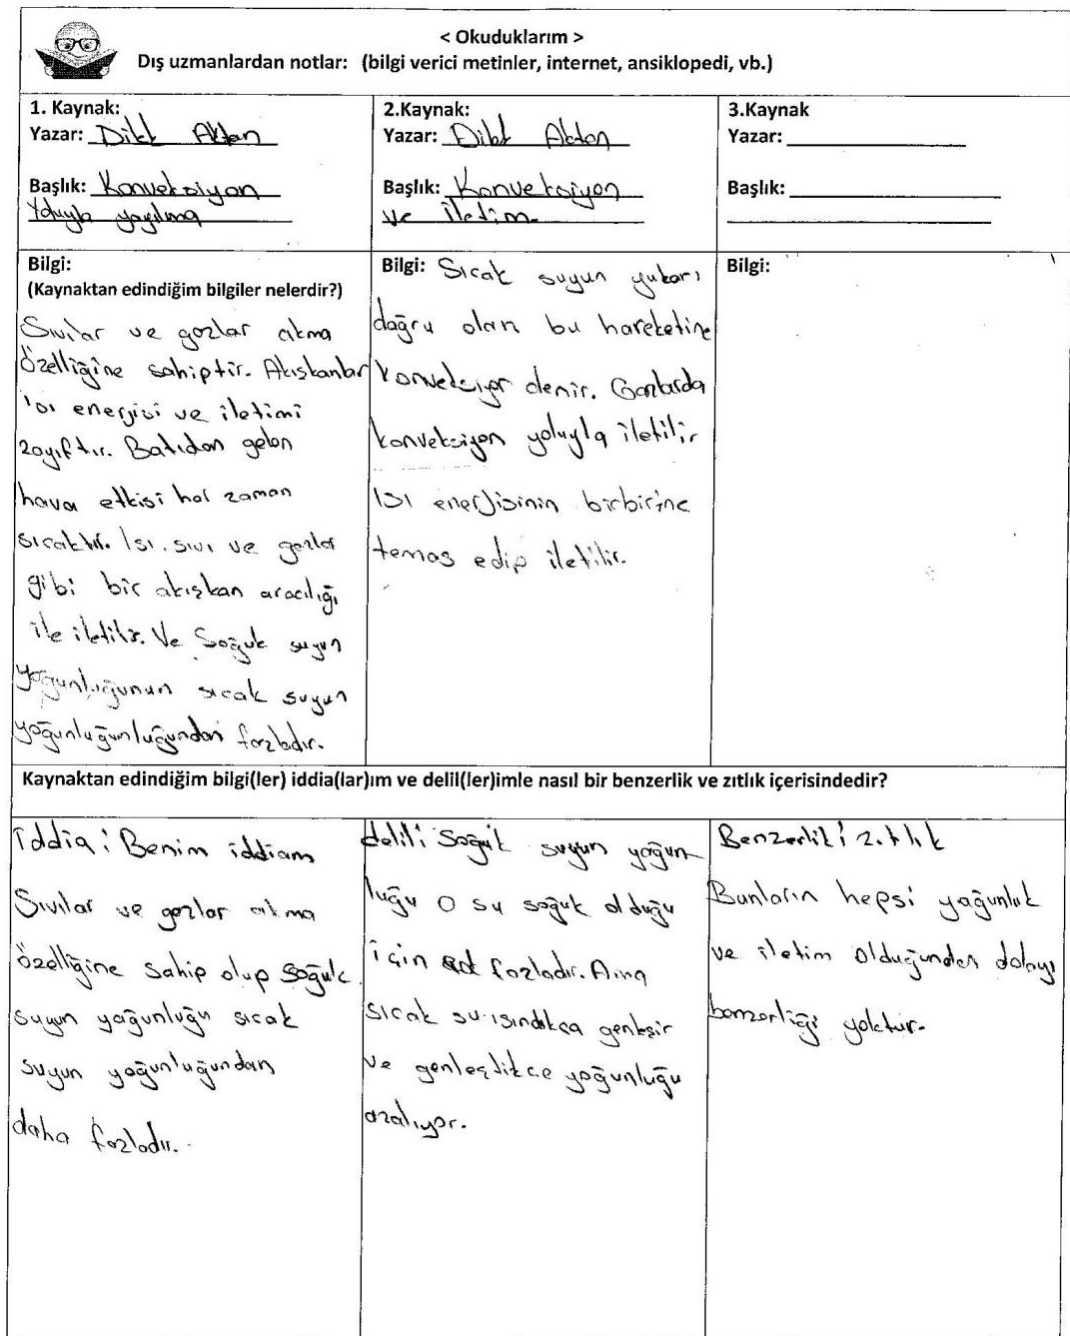 < Okuduklarım >
Dış uzmanlardan notlar: (bilgi verici metinler, internet, ansiklopedi, vb.)
1. Kaynak:
Yazar: Dikt Aktan
Başlık: Konveksiyon
Yoluyla yayılma
2.Kaynak:
Yazar: Dikt Aktan
Başlık: Konveksiyon
ve iletim
3.Kaynak
Yazar:
Başlık:
Bilgi:
(Kaynaktan edindiğim bilgiler nelerdir?)
Sıvılar ve gazlar akma
özelliğine sahiptir. Akışkanlar
ısı enerjisi ve iletimi
zayıftır. Batıdan gelen
hava etkisi her zaman
sıcaktır. Isı. sıvı ve gazlar
gibi bir akışkan aracılığı
ile iletilir. Ve Soğuk suyun
yoğunluğunun sıcak suyun
yoğunluğunluğundan fazladır.
Bilgi: Sıcak suyun yukarı
doğru olan bu hareketine
konveksiyon denir. Gazlarda
konveksiyon yoluyla iletilir
ısı enerjisinin birbirine
temas edip iletilir.
Bilgi:
Kaynaktan edindiğim bilgi(ler) iddia(lar)ım ve delil(ler)imle nasıl bir benzerlik ve zıtlık içerisindedir?
iddia: Benim iddiam
Sıvılar ve gazlar akma
özelliğine sahip olup soğuk
suyun yoğunluğu sıcak
suyun yoğunluğundan
daha fazladır.
delili Soğuk suyun yoğun
luğu o su soğuk olduğu
için fazladır. Ama
sıcak su ısındıkça genleşir
ve genleştikce yoğunluğu
azalıyor.
Benzerlik: zıtlık
Bunların hepsi yoğunluk
ve iletim olduğundan dolayı
benzerliği yoktur.